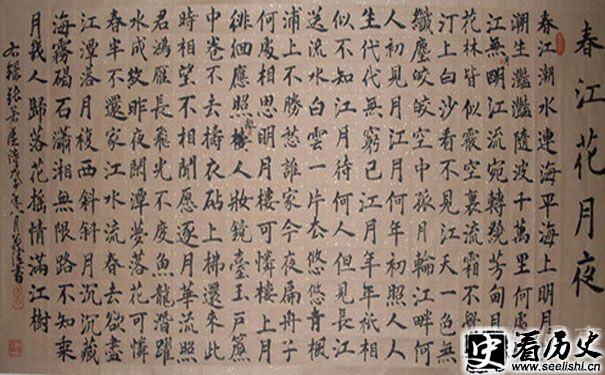 春江花月夜
春江潮水連海平海上明月
潮生灩灩隨波千萬里何處
江無明江流宛轉繞芳甸月
花林皆似霰空裏流霜不
汀上白沙看不見江天一色無
纖塵皎皎空中孤月輪江畔何
人初見月江月何年初照人人
生代代無窮已江月年年祇相
似不知江月待何人但見長江
送流水白雲一片去悠悠青楓
浦上不勝愁誰家今夜扁舟子
何處相思明月樓可憐樓上月
徘徊應照樓人妝鏡臺玉戶簾
中卷不去擣衣砧上拂還來此
時相望不相聞願逐月華流照
君鴻雁長飛光不度魚龍潛躍
水成紋昨夜閒潭夢落花可憐
春半不還家江水流春去欲盡
江潭落月複西斜斜月沉沉藏
海霧碣石瀟湘無限路不知乘
月幾人歸落花搖情滿江樹
右錄張若虛詩
看历史
www.seelishi.cn